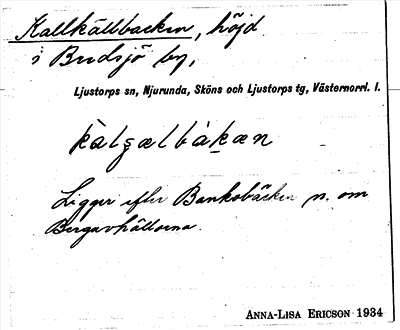 Kallkällbacken, höjd
i Bredsjö by,
Ljustorps sn, Njurunda, Sköns och Ljustorps tg, Västernorrl. l.
Ligger efter Banksbäcken n. om
ANNA-LISA ERICSON 1934